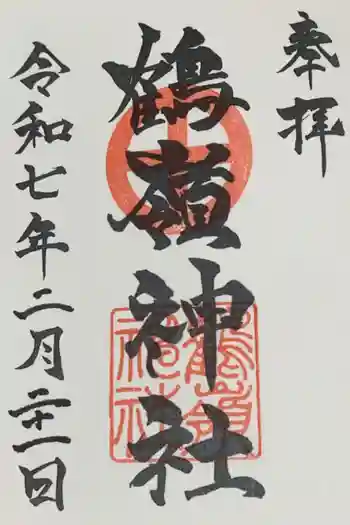 奉拝
鶴嶺神社
令和七年二月二十一日